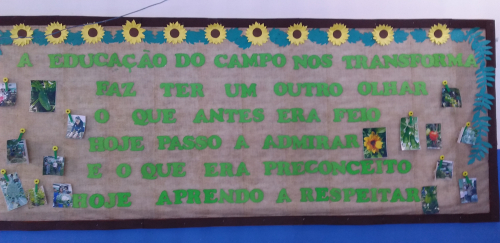 A EDUCAÇÃO DO CAMPO NOS TRANSFORMA
FAZ TER UM OUTRO OLHAR
O QUE ANTES ERA FEIO
HOJE PASSO A ADMIRAR
E O QUE ERA PRECONCEITO
HOJE APRENDO A RESPEITAR